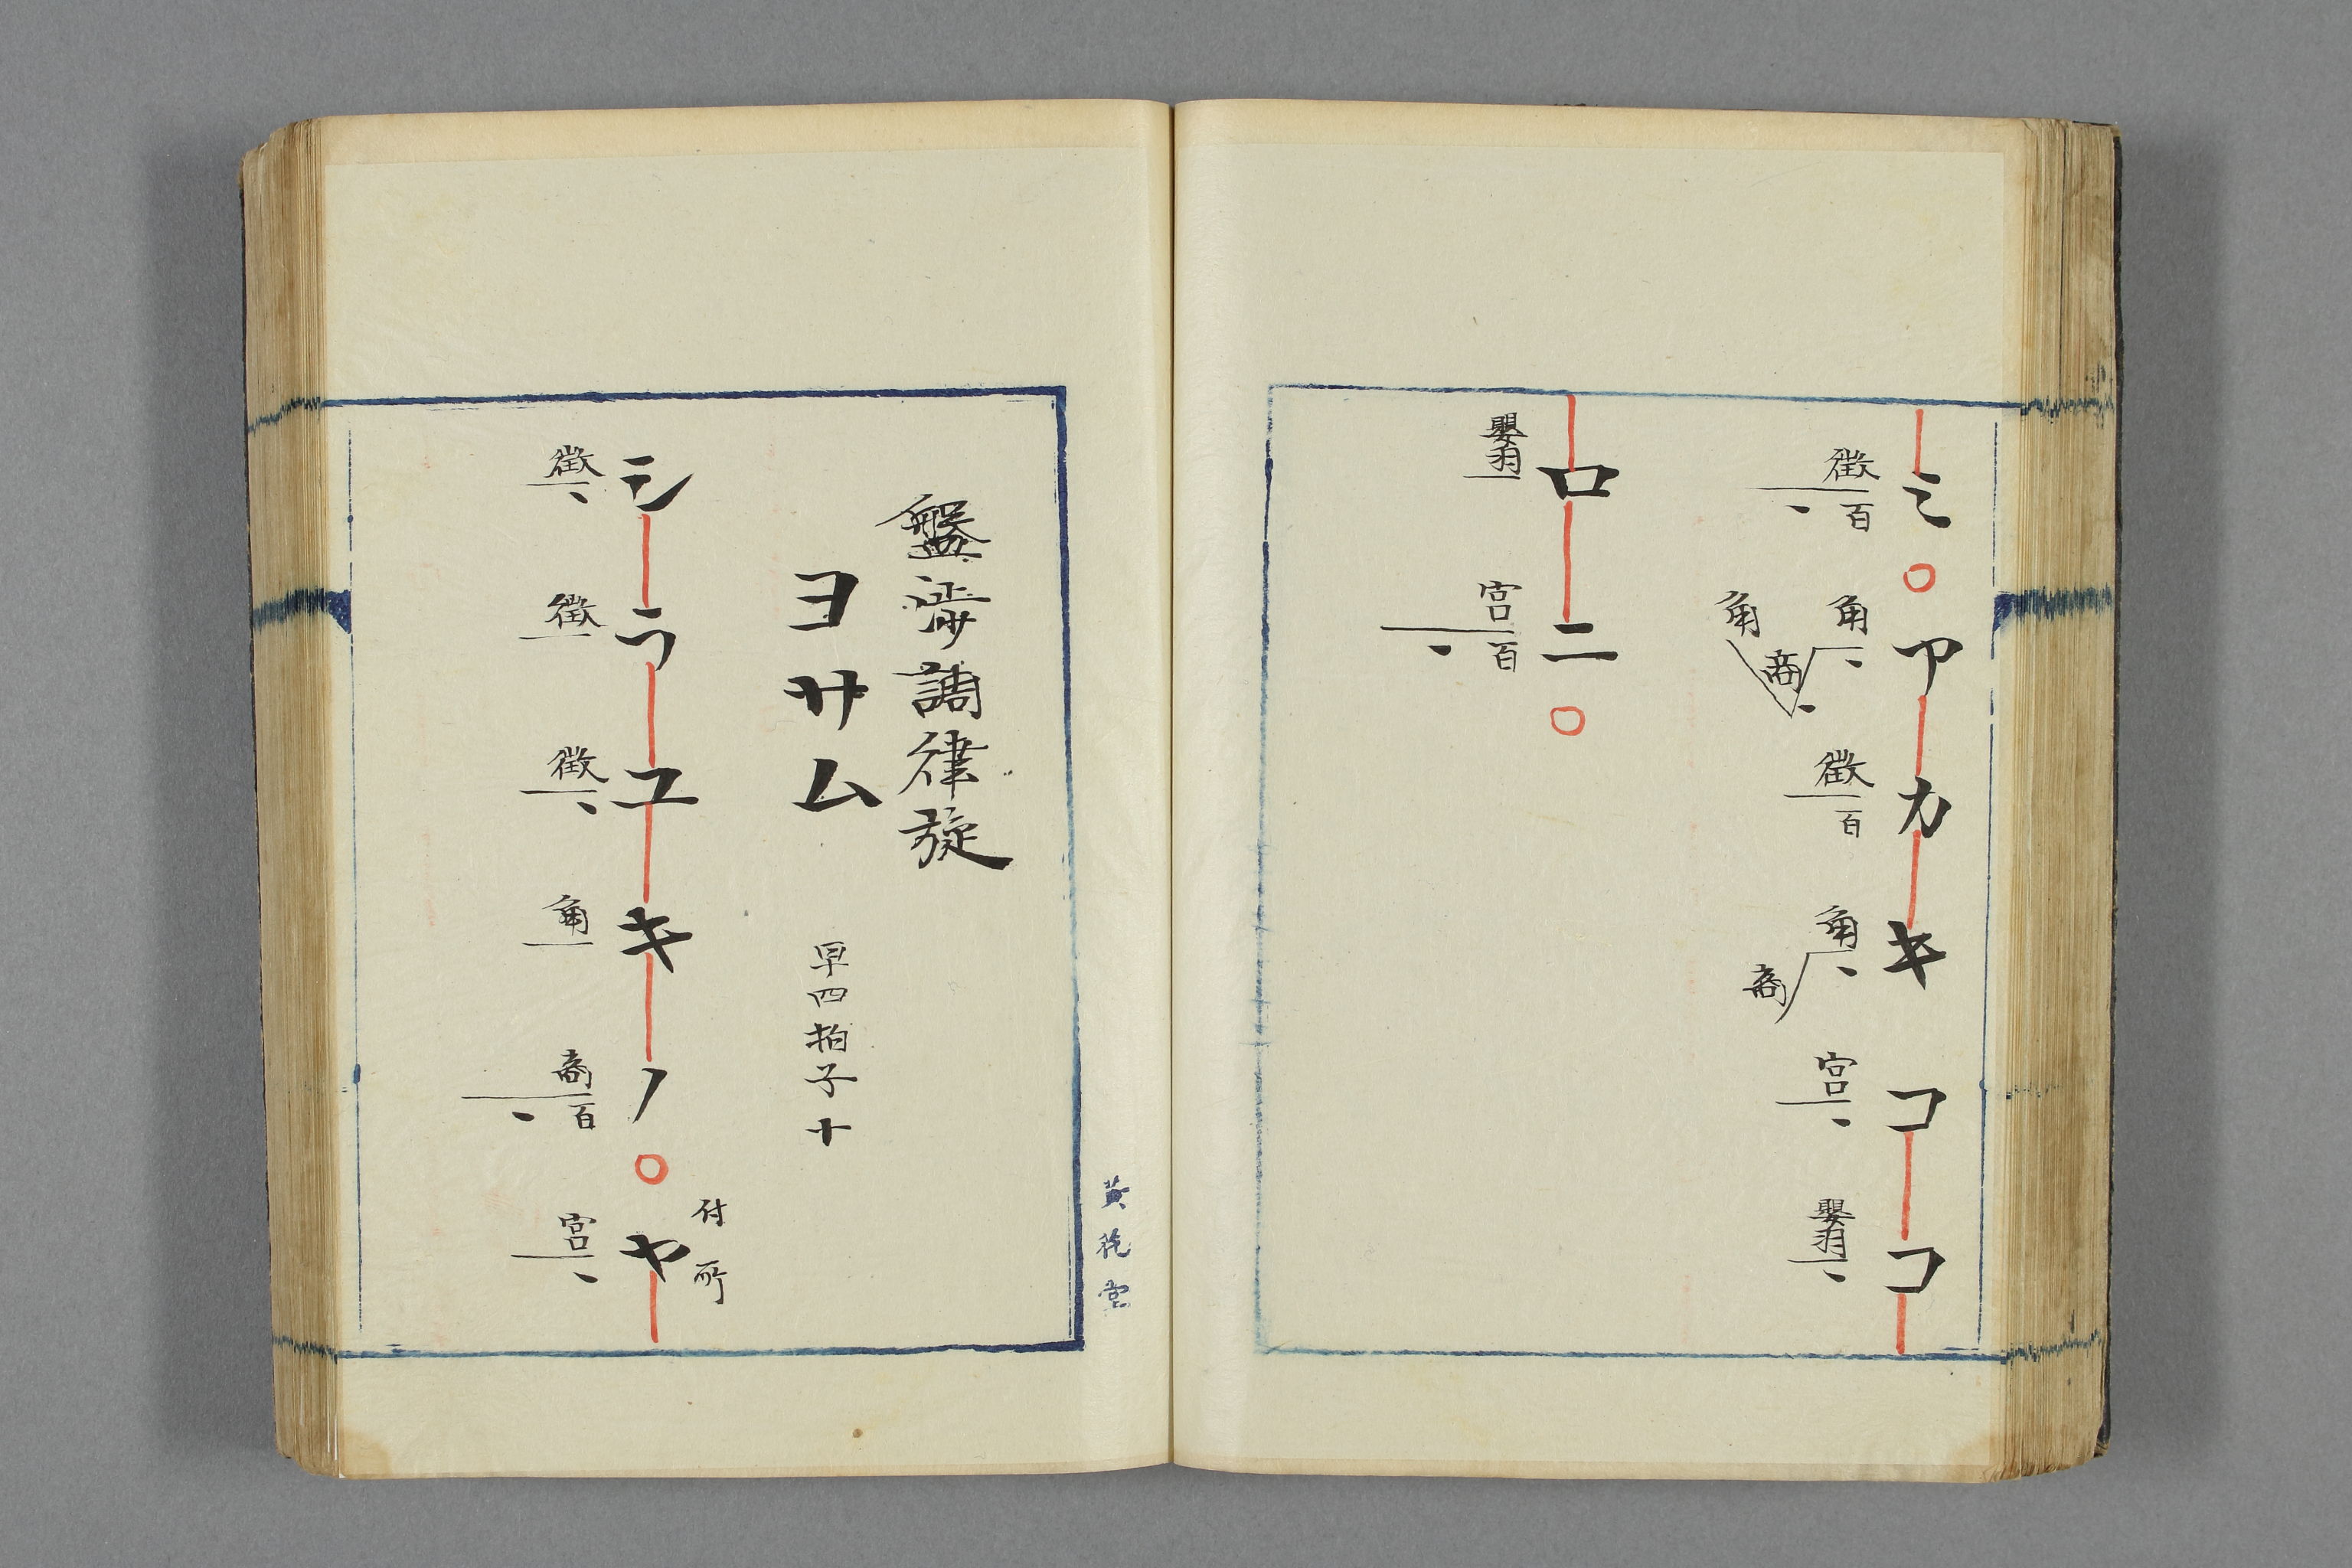 ミ○アカキココ
徴百 角商角 徴百 角商 宮 嬰羽
ロニ○
嬰羽 宮百
盤渉調律旋
ヨサム 早四拍子十
付所
シラユキノ○ヤ
徴 徴 徴 角 商百 宮